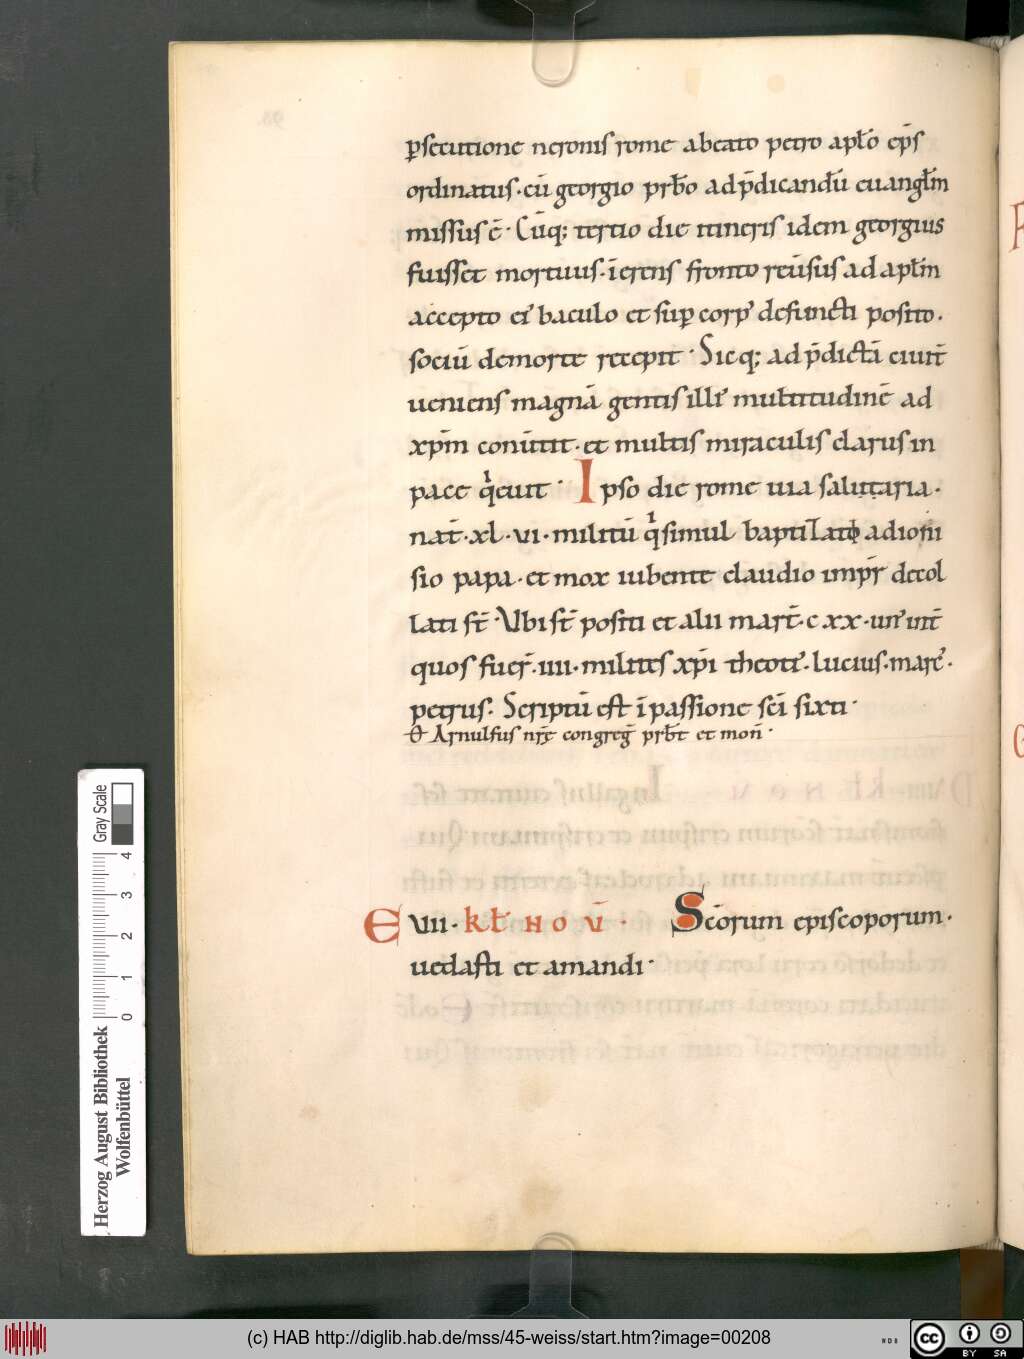 ꝑsecutione neronis rome abeato petro aplo̅ ep̅s
ordinatus. cu̅ georgio prb̅o adp̅dicandu̅ euangl̅m
missus e̅. Cu̅q; tertio die itineris idem georgius
fuisset mortuus. i̅erens fronto reu̅sus ad apl̅m
accepto ei᾽ baculo et suꝑ corp᾽ defuncti posito.
sociu̅ demorte recepit. Sicq; adp̅dicta̅ ciuit̅
ueniens magna̅ gentis illi᾽ multitudine̅ ad
xpm̅ conu̅tit. et multis miraculis clarus in
pace qͥeuit. Ipso die rome uia salutaria.
nat̅. xl. vi. militu̅ qͥ simul baptizati adioni
sio papa. et mox iubente claudio imp̅r decol
lati st̅. Vbi st̅ positi et alii mart̅. cxx. un᾽ int̅
quos fuer̅. iiii. milites xp̅i theoti᾽. lucius. marc᾽.
petrus. Scriptu̅ est i̅ passione sc̅i sixti.
Arnulfus nr̅e congreg̅ prb̅t et mon̅.
E VII. kl̅ NOV̅. Sc̅orum episcoporum.
uedasti et amandi.
Herzog August Bibliothek
Wolfenbüttel
0 1 2 3 4
Gray Scale
(c) HAB http://diglib.hab.de/mss/45-weiss/start.htm?image=00208
WDB
cc
BY SA